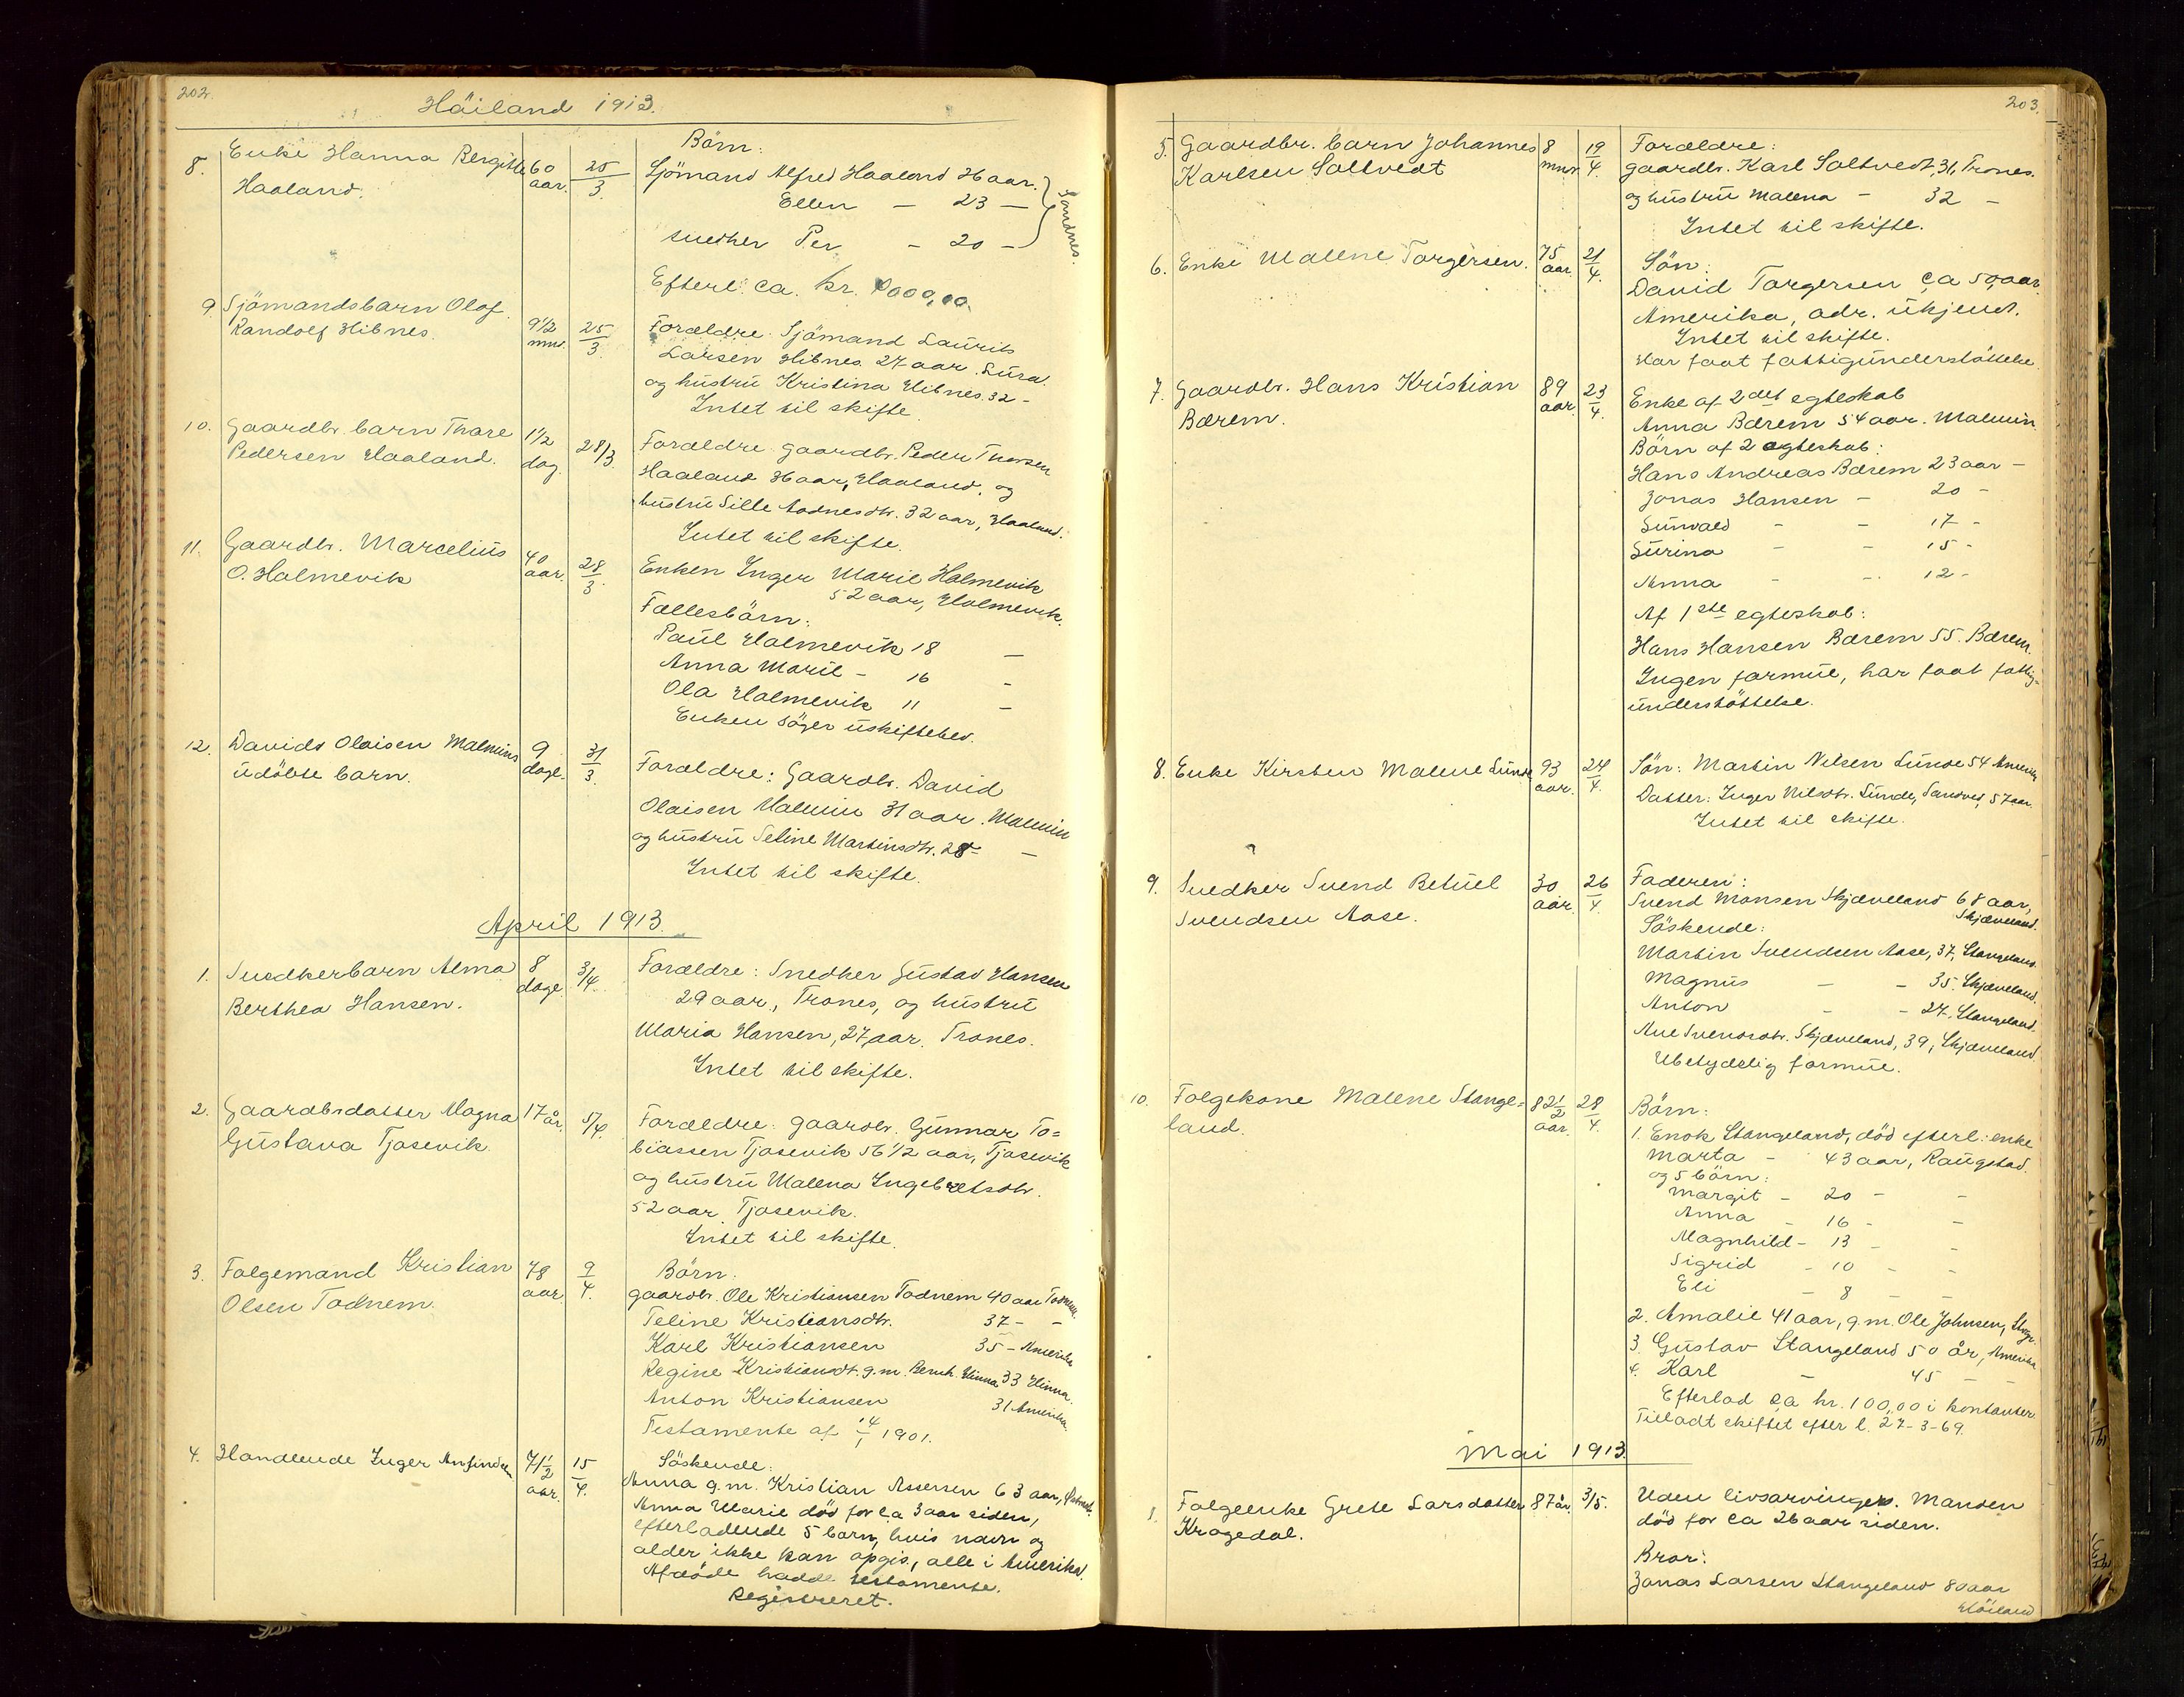 202.
Häiland 1913.
8. Enke Hanna Bergitte 60 aar. 25/3
Haaland.
Börn:
Sjömand Alfred Haaland 36 aar.
Ellen — 23 —
snedker Per — 20 —
Sandnes.
Efterl. ca. kr.
9. Sjömandsbarn Olof
Randolf Hibnes. 9 1/2 mnr. 25/3
Forældre: Sjömand Laurits
Larsen Hibnes. 27 aar. Lura.
og hustru Kristina Hibnes. 32 –
Intet til skifte.
10. Gaardbr. barn Thore 1 1/2 dag. 28/3
Pedersen Haaland.
Forældre gaardbr. Peder Thorsen
Haaland 36 aar, Haaland, og
hustru Sille Aadnesdtr. 32 aar, Haaland.
Intet til skifte.
11. Gaardbr. Marcelius 40 aar. 28/3
O. Holmevik
Enken Inger Marie Holmevik
52 aar, Holmevik.
Fællesbörn:
Paul Holmevik 18 —
Anna Marie – 16 –
Ola Holmevik 11 –
Enken söger uskiftebev.
12. Davids Olaisen Malmins 9 dage. 31/3
udöbte barn.
Forældre: Gaardbr. David
Olaisen Malmin 31 aar. Malmin
og hustru Seline Martinsdtr. 28 – —
Intet til skifte.
April 1913.
1. Snedkerbarn Alma 8 dage. 3/4.
Berthea Hansen.
Forældre: Snedker Gustav Hansen
29 aar, Trones, og hustru
Maria Hansen, 27 aar. Trones.
Intet til skifte.
2. Gaardbrdatter Magna 17 år. 5/4.
Gustava Tjosevik.
Forældre: gaardbr. Gunnar To=
biassen Tjosevik 56 1/2 aar, Tjosevik
og hustru Malena Ingebretsdtr.
52 aar. Tjosevik.
Intet til skifte.
3. Folgemand Kristian 78 aar. 9/4.
Olsen Todnem.
Börn:
gaardbr. Ole Kristiansen Todnem 40 aar Todnem.
Teline Kristiansdtr. 37 – –
Karl Kristiansen 35 – Amerika
Regine Kristiansdt. g.m. Bernh. Hinna 33 Hinna.
Anton Kristiansen 31 Amerika.
Testamente af 14/1 1901.
4. Handlende Inger Anfindsen 71 1/2 aar. 15/4.
Söskende:
Anna g.m. Kristian Assersen 63 aar,
Anna Marie död for ca 3 aar siden,
efterladende 5 barn, hvis navn og
alder ikke kan opgis, alle i Amerika.
Afdöde hadde testamente.
Registreret.
203.
5. Gaardbr. barn Johannes 8 mnr. 19/4.
Karlsen Soltvedt
Forældre:
gaardbr. Karl Soltvedt, 31, Trones.
og hustru Malena – 32 –
Intet til skifte.
6. Enke Malene Torgersen. 75 aar. 21/4.
Sön:
David Torgersen ca 50 aar.
Amerika, adr. ukjent.
Intet til skifte.
Har faat fattigunderstöttelse.
7. Gaardbr. Hans Kristian 89 aar. 23/4.
Bærem.
Enke af 2det egteskab
Anna Bærem 54 aar. Malmin.
Börn af 2 egteskab:
Hans Andreas Bærem 23 aar –
Jonas Hansen – 20 –
Sunvald – – 17 –
Surina – – 15 –
Anna – – 12 –
Af 1ste egteskab:
Hans Hansen Bærem 55. Bærem.
Ingen formue, har faat fattig=
understöttelse.
8. Enke Kirsten Malene Lunde 93 aar. 24/4.
Sön: Martin Nilsen Lunde 54 Amerika
Datter: Inger Nilsdtr. Lunde, Sandved, 57 aar.
Intet til skifte.
9. Snedker Svend Betuel 30 aar. 26/4.
Svendsen Aase.
Faderen:
Svend Monsen Skjæveland 68 aar,
Skjæveland.
Söskende:
Martin Svendsen Aase, 37, Stangeland.
Magnus — – 35. Skjæveland.
Anton – – 27. Stangeland.
Ane Svendsdtr. Skjæveland, 39, Skjæveland.
Ubetydelig formue.
10. Folgekone Malene Stange= 82 1/2 aar. 28/4.
land.
Börn:
1. Enok Stangeland, död efterl: enke
Marta – 43 aar, Raugstad.
og 5 börn:
Margit – 20 – –
Anna – 16 – –
Magnhild – 13 – –
Sigrid – 10 – –
Eli – 8 – –
2. Amalie 41 aar, g.m. Ole Johnsen, Stangl.
3. Gustav Stangeland 50 år, Amerika
4. Karl – 45 – –
Efterlod ca kr. 100,00 i kontanter.
Tilladt skiftet efter l. 27-3-69.
Mai 1913.
1. Folgeenke Grete Larsdatter 87 år. 3/5.
Kragedal.
Uden livsarvinger. Manden
död for ca 26 aar siden.
Bror:
Jonas Larsen Stangeland 80 aar
Höiland